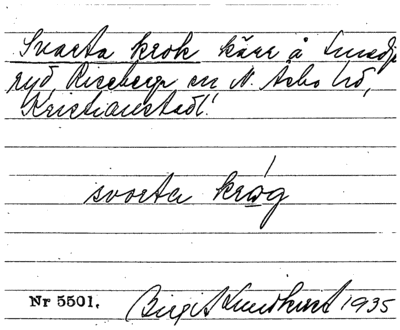 Svarta krok kärr å Smedje
ryd, Riseberga sn N. Åsbo hd,
Kristianstads l.
svarta kråg
Nr 5501. Birgit Lundkvist 1935